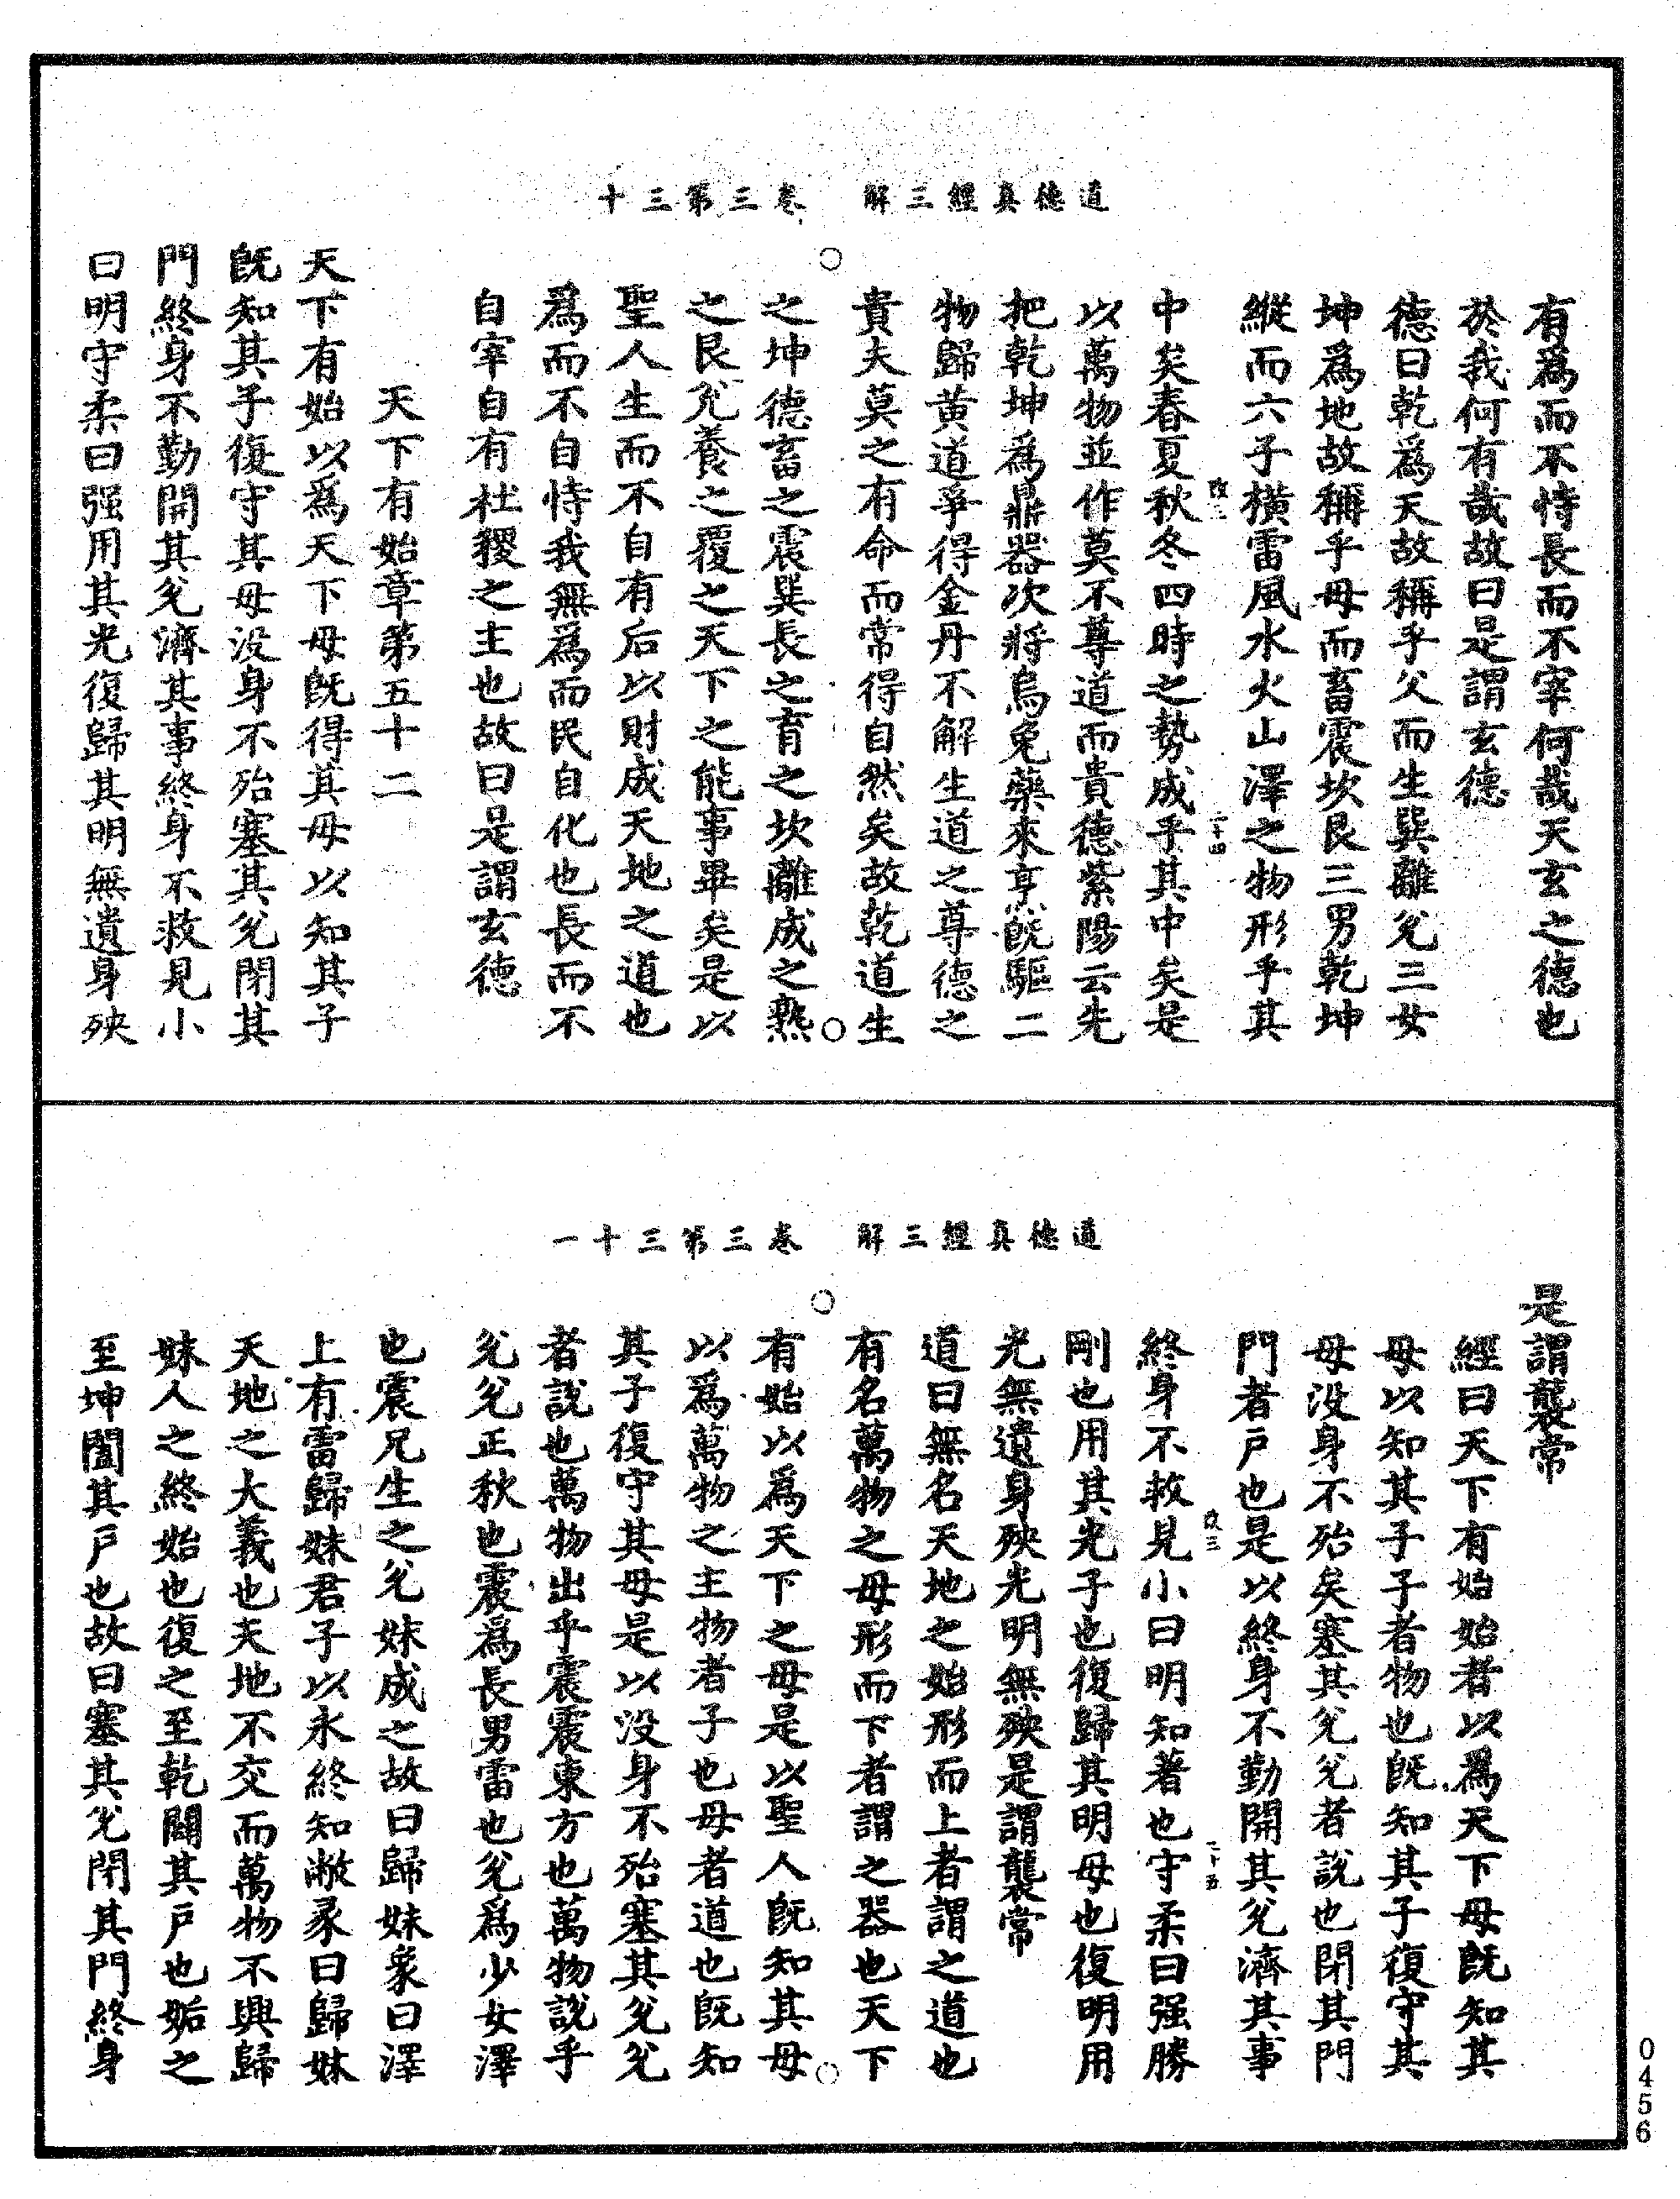 道德真經三解　卷三第三十
有為而不恃長而不宰何哉天玄之德也
於我何有哉故曰是謂玄德
德曰乾為天故稱乎父而生巽離兊三女
坤為地故稱乎母而畜震坎艮三男乾坤
縱而六子橫雷風水火山澤之物形乎其
中矣春夏秋冬四時之勢成乎其中矣是
以萬物並作莫不尊道而貴德紫陽云先
把乾坤為鼎器次將烏兔藥來烹既驅二
物歸黃道爭得金丹不解生道之尊德之
貴夫莫之有命而常得自然矣故乾道生
之坤德畜之震巽長之育之坎離成之熟
之艮兊養之覆之天下之能事畢矣是以
聖人生而不自有后以財成天地之道也
為而不自恃我無為而民自化也長而不
自宰自有社稷之主也故曰是謂玄德
天下有始章第五十二
天下有始以為天下母既得其母以知其子
既知其子復守其母没身不殆塞其兊閉其
門終身不勤開其兊濟其事終身不救見小
曰明守柔曰强用其光復歸其明無遺身殃
道德真經三解　卷三第三十一
是謂襲常
經曰天下有始始者以為天下母既知其
母以知其子子者物也既知其子復守其
母没身不殆矣塞其兊兊者說也閉其門
門者戶也是以終身不勤開其兊濟其事
終身不救見小曰明知著也守柔曰强勝
剛也用其光子也復歸其明母也復明用
光無遺身殃光明無殃是謂襲常
道曰無名天地之始形而上者謂之道也
有名萬物之母形而下者謂之器也天下
有始以為天下之母是以聖人既知其母
以為萬物之主物者子也母者道也既知
其子復守其母是以没身不殆塞其兊兊
者說也萬物出乎震震東方也萬物說乎
兊兊正秋也震為長男雷也兊為少女澤
也震兄生之兊妹成之故曰歸妹象曰澤
上有雷歸妹君子以永終知敝彖曰歸妹
天地之大義也天地不交而萬物不興歸
妹人之終始也復之至乾闢其戶也姤之
至坤闔其戶也故曰塞其兊閉其門終身
0456